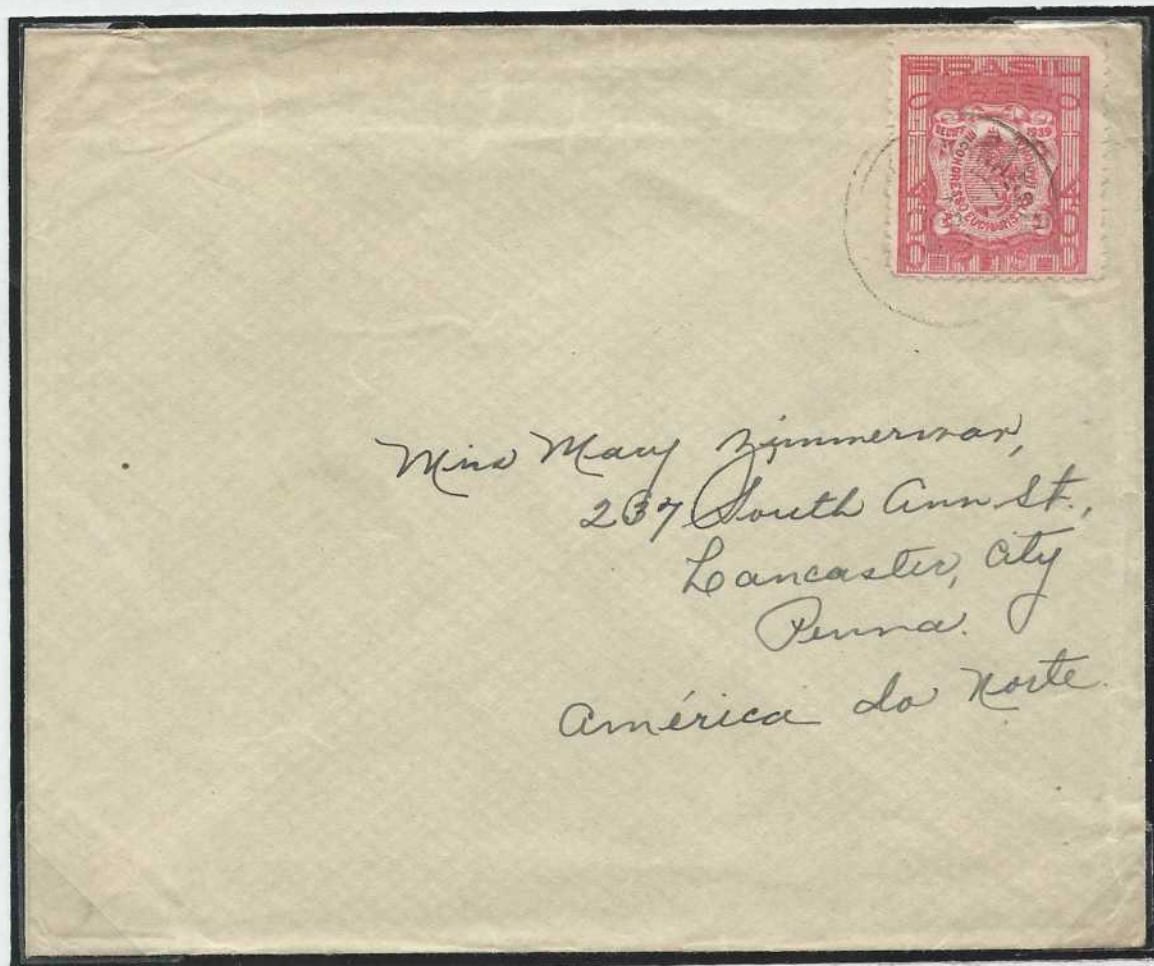 BRASIL
CORREIO
400 400
RECIFE 1939
III CONGRESSO EUCHARISTICO
Miss Mary Zimmerman,
237 South Ann St.,
Lancaster, City
Penna.
América do Norte.